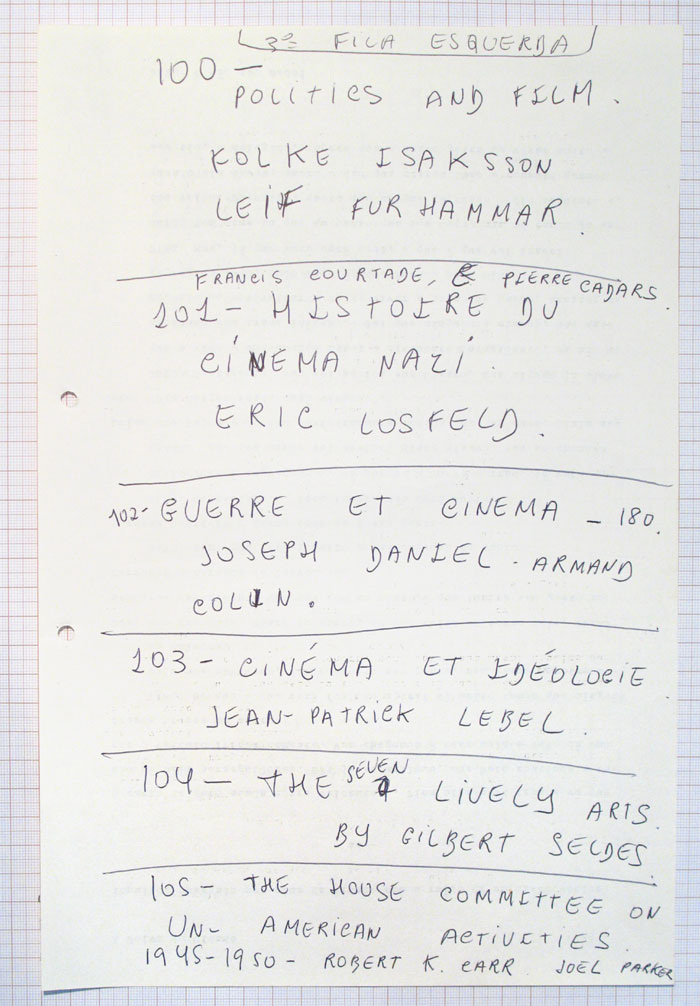 3ª FILA ESQUERDA
100 -
POLITICS AND FILM.
FOLKE ISAKSSON
LEIF FURHAMMAR.
FRANCIS COURTADE, & PIERRE CADARS.
101 - HISTOIRE DU
CINEMA NAZI.
ERIC LOSFELD.
102 - GUERRE ET CINEMA - 180.
JOSEPH DANIEL. ARMAND
COLIN.
103 - CINÉMA ET IDÉOLOGIE
JEAN-PATRICK LEBEL.
104 - THE SEVEN LIVELY ARTS.
BY GILBERT SELDES.
105 - THE HOUSE COMMITTEE ON
UN-AMERICAN ACTIVITIES.
1945-1950 - ROBERT K. CARR. JOEL PARKER